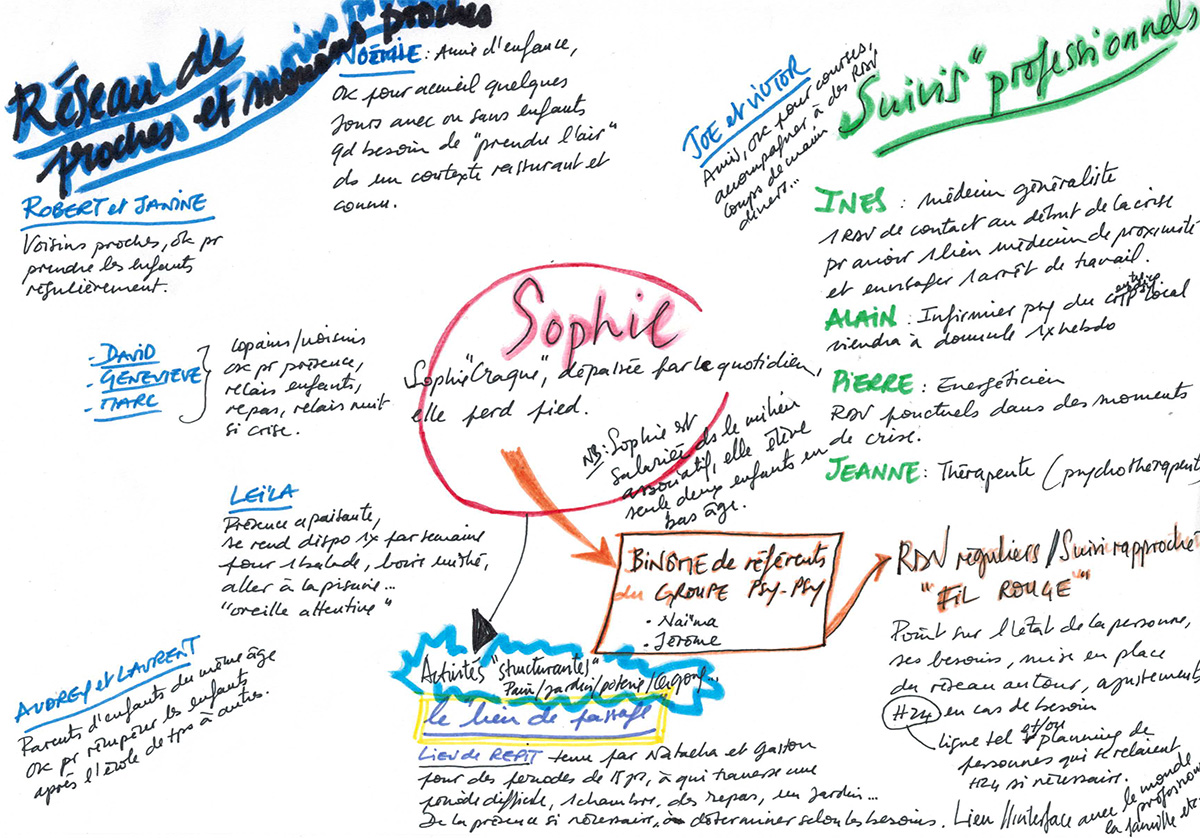 Réseau de
proches et moins proches
NOÉMIE : Amie d'enfance,
OK pour accueil quelques
jours avec ou sans enfants
qd besoin de "prendre l'air"
ds un contexte rassurant et
connu.
ROBERT et JANINE
Voisins proches, ok pr
prendre les enfants
régulièrement.
- DAVID
- GENEVIEVE
- MARC
copains/voisins
OK pr présence,
relais enfants,
repas, relais nuit
si crise.
LEÏLA
Présence apaisante,
se rend dispo 1x par semaine
pour 1 balade, boire un thé,
aller à la piscine...
"oreille attentive"
AUDREY et LAURENT
Parents d'enfants du même âge
OK pr récupérer les enfants
après l'école de tps à autres.
JOE et VICTOR
Amis, ok pour courses,
accompagner à des RDV
coups de main
divers...
Suivis "professionnels
INES : médecin généraliste
1 RDV de contact au début de la crise
pr avoir 1 lien médecin de proximité
et envisager 1 arrêt de travail.
ALAIN : Infirmier psy du local
viendra à domicile 1x hebdo
PIERRE : Energéticien
RDV ponctuels dans des moments
de crise.
JEANNE : Thérapeute (psychothérapeut
Sophie
Sophie "Craque", dépassée par le quotidien,
elle perd pied.
NB : Sophie est
salariée ds le milieu
associatif, elle élève
seule deux enfants en
bas âge.
BINÔME de référents
du GROUPE Psy-Psy
• Naïma
• Jérôme
RDV réguliers/Suivi rapproché
"FIL ROUGE"
Point sur l'état de la personne,
ses besoins, mise en place
du réseau autour, ajustements
H24 en cas de besoin
ligne tel et/ou planning de
personnes qui se relaient
H24 si nécessaire.
Lien/Interface avec le monde
professionn
la famille etc.
Activités "structurantes"
Pain/jardin/poterie/Qi gong...
le "lieu de passage"
LIEU de REPIT tenu par Natacha et Gaston
pour des périodes de 15 jrs, à qui traverse une
période difficile, 1 chambre, des repas, un jardin...
De la présence si nécessaire, à déterminer selon les besoins.